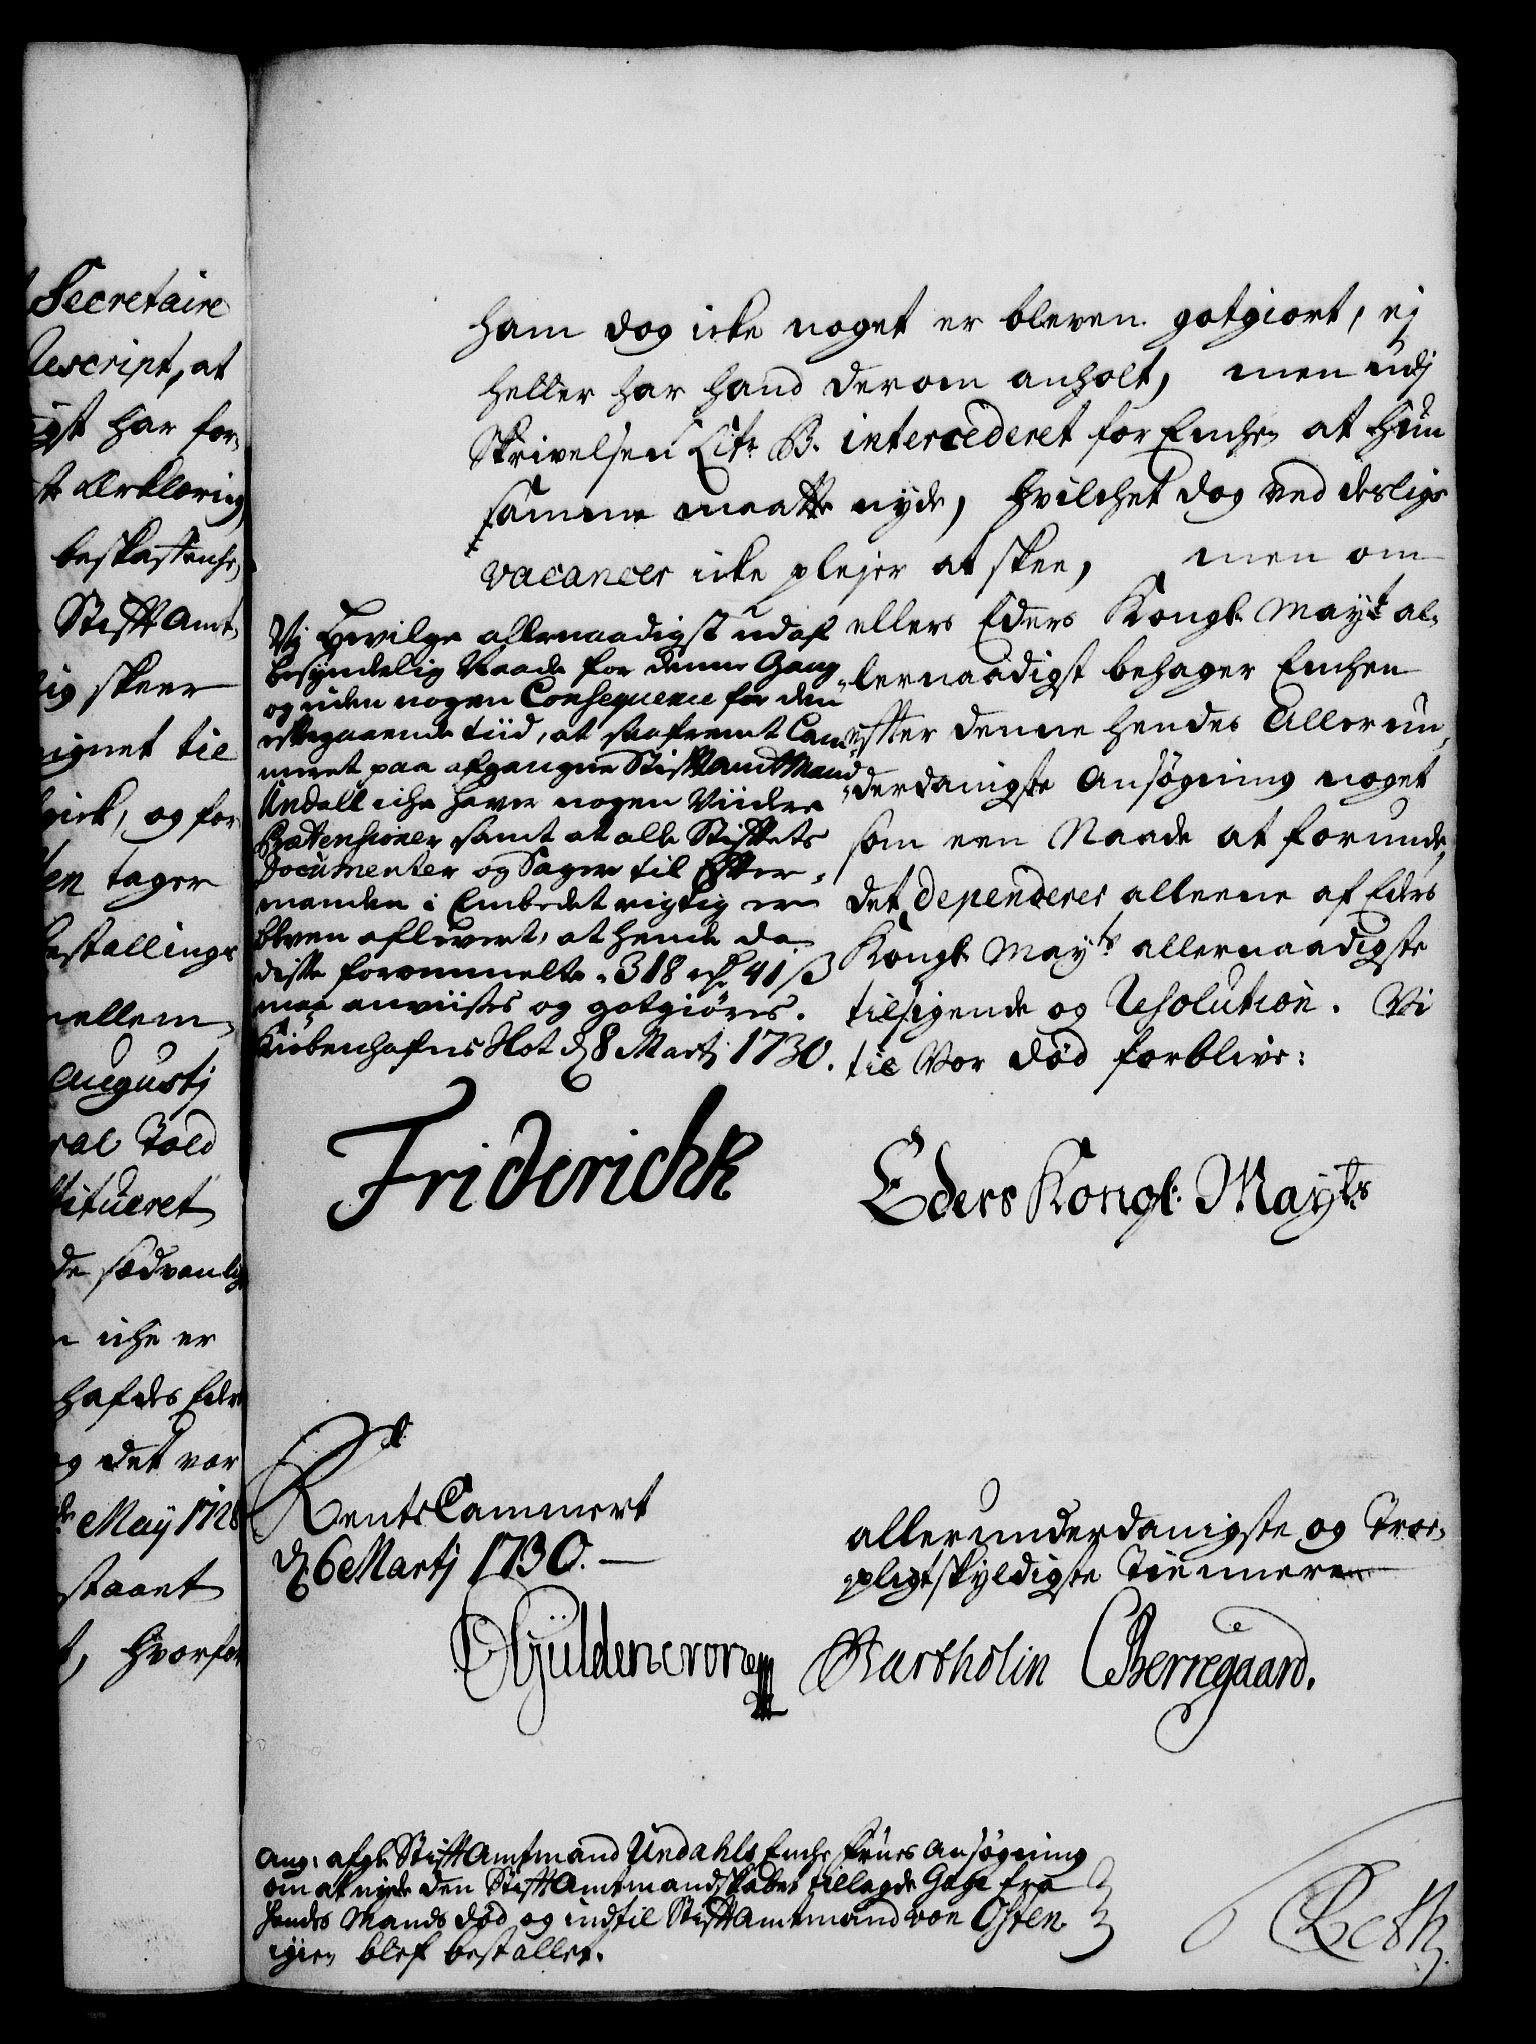 Secretaire
Rescript, at
igst har for-
te Erklæring,
beskaffenhe,
Stifft Amt-
lig skeer
eignet til
gick, og for
en tager
estallings
mellem-
Augustj
ral Told
stitueret
de sædvanlig
n iche er
hafdes Eders
og det var
de May 1728
staaet
t, hvorfor
ham dog icke noget er bleven gotgiort, ej
heller har hand derom anholt, men udj
Skrivelsen Litr B. intercederet for Enchen at Hun
samme maatte nyde, hvilchet dog ved deslige
vacancer icke plejer at skee, men om
ellers Eders Kongl. Mayts al-
lernaadigst behager Enchen
effter denne hendes Allerun-
derdanigste Ansøgning noget
som een Naade at forunde,
det dependerer alleene af Eders
Kongl. Mayts allernaadigste
tilsigende og Resolution. Vi
til Vor Død forblive:
Vj bevilge allernaadigst udaf
besynderlig Naade for denne Gang
og uden nogen Consequence for den
eftergaaende tiid, at saafremt Cam-
meret paa afgangne Stiftamtmand
Undall iche haver nogen Viidere
Prætensioner samt at alle Stiftets
Documenter og Sager til Efter-
manden i Embedet rigtig er
bleven aflevert, at hende da
diste forommelte 318 rdr 41 ß
maa anviises og gotgiøres.
Kiøbenhafns Slot d. 8 Martj 1730.
Friderich R
Eders Kongl. Mayts
RenteCammeret
d. 6 Martj 1730.
allerunderdanigste og Troe-
pligtskyldigste Tiennere
Gÿldencrone Bartholin CBerregaard.
Ang: afgl. StifftAmtmand Undahls Enche Frues Ansøgning
om at nyde den StifftAmtmandskabet tillagde Gage fra
hendes Mands død og indtil StifftAmtmand von Osten
igien blef bestallet.